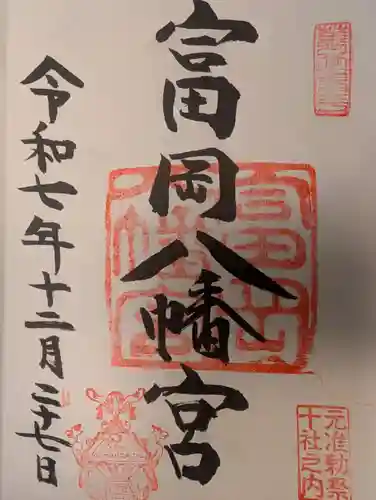 富岡八幡宮
令和七年十二月二十七日
富岡八幡宮
元准勅祭
十社之内